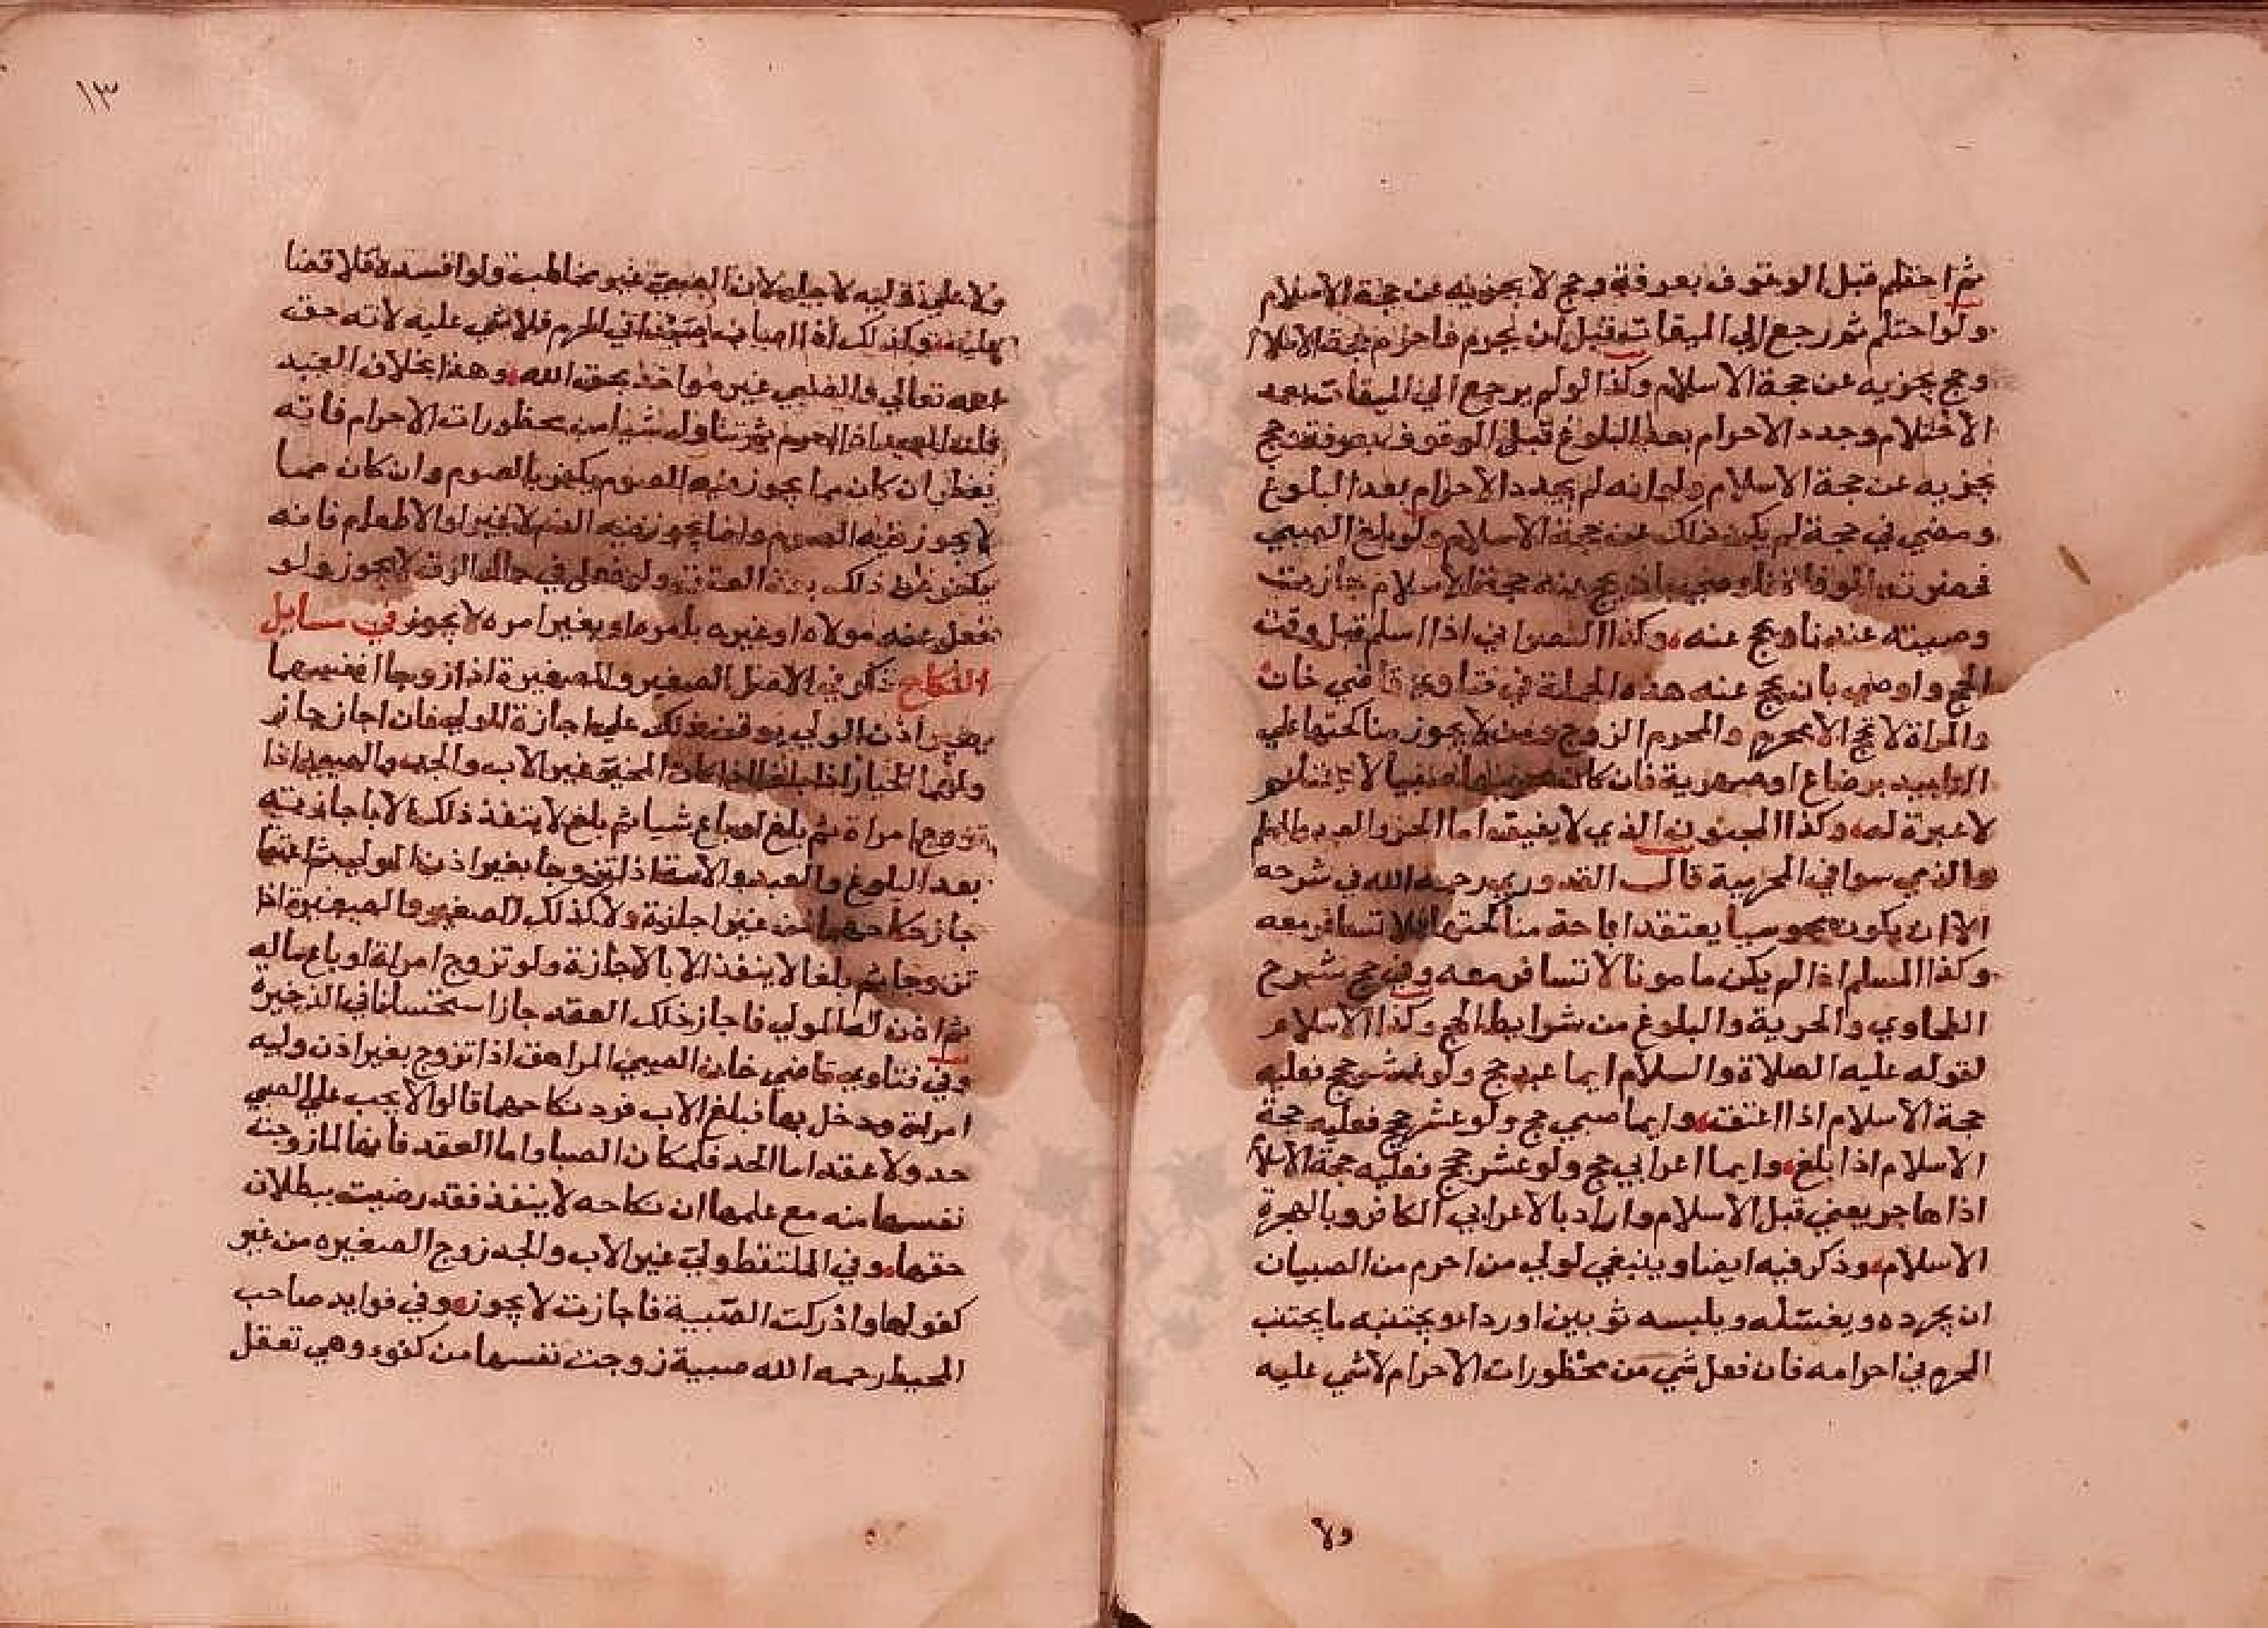 ثم احتلم قبل الوقوف بعرفة وحج لا يجزيه عن حجة الاسلام
ولو احتلم ثم رجع الي الميقات قبل ان يحرم فاحرم بحجة الاسلام
وحج يجزيه عن حجة الاسلام وكذا لو لم يرجع الي الميقات بعد
الاحتلام وجدد الاحرام بعد البلوغ قبل الوقوف بعرفة وحج
يجزيه عن حجة الاسلام ولو انه لم يجدد الاحرام بعد البلوغ
ومضي في حجة لم يكن ذلك عن حجة الاسلام ولو بلغ الصبي
فحضرته الوفاة فاوصي بان يحج عنه حجة الاسلام جازت
وصيته عندنا ويحج عنه وكذا النصراني اذا اسلم قبل وقت
الحج واوصي بان يحج عنه هذه الجملة في فتاوي قاضي خان
والمراة لا تحج الا بمحرم والمحرم الزوج ومن لا يجوز مناكحتها علي
التابيد برضاع او صهرية فان كان
لا عبرة له وكذا المجنون الذي لا يفيق اما الحر والعبد والمسلم
والذمي سوا في المحرمية قال القدوري رحمه الله في شرحه
الا ان يكون مجوسيا يعتقد اباحة مناكحتها فلا تسافر معه
وكذا المسلم اذا لم يكن مامونا لا تسافر معه وفي حج شرح
الطحاوي والحرية والبلوغ من شرايط الحج وكذا الاسلام
لقوله عليه الصلاة والسلام ايما عبد حج ولو عشر حجج فعليه
حجة الاسلام اذا اعتق وايما صبي حج ولو عشر حجج فعليه حجة
الاسلام اذا بلغ وايما اعرابي حج ولو عشر حجج فعليه حجة الاسلام
اذا هاجر يعني قبل الاسلام واراد بالاعرابي الكافر وبالهجرة
الاسلام وذكر فيه ايضا وينبغي لولي من احرم من الصبيان
ان يجرده ويغسله ويلبسه ثوبين اوردا ويجتنبه ما يجتنب
المحرم في احرامه فان فعل شي من محظورات الاحرام لا شي عليه
ولا
١٣
ولا علي وليه لاجله لان الصبي غير مخاطب ولو افسده فلا قضا
عليه وكذلك اذا اصاب صيدا في الحرم فلا شي عليه لانه حق
الله تعالي والصبي غير مواخذ بحق الله وهذا بخلاف العبد
فان العبد اذا احرم ثم تناول شيا من محظورات الاحرام فانه
ينظر ان كان مما يجوز فيه الصوم يكفر بالصوم وان كان مما
لا يجوز فيه الصوم وانما يجوز فيه الدم لا غير او الاطعام فانه
يكفر ذلك بعد العتق ولو فعل في حال الرق لا يجوز ولو
فعل عنه مولاه او غيره بامره او بغير امره لا يجوز في مسايل
النكاح ذكر في الاصل الصغير والصغيرة اذا زوجا انفسهما
بغير اذن الولي يوقف ذلك علي اجازة الولي فان اجاز جاز
ولهما الخيار اذا بلغا اذا كان المجيز غير الاب والجد والصبي اذا
تزوج امراة ثم بلغ او باع شيا ثم بلغ لا ينفذ ذلك الا باجازته
بعد البلوغ والعبد والامة اذا تزوجا بغير اذن المولي ثم اعتقا
جاز نكاحهما من غير اجازة ولا كذلك الصغير والصغيرة اذا
تزوجا ثم بلغا لا ينفذ الا بالاجازة ولو تزوج امراة او باع ماله
ثم اذن له المولي فاجاز ذلك العقد جاز استحسانا في الذخيرة
وفي فتاوي قاضي خان الصبي المراهق اذا تزوج بغير اذن وليه
امراة ودخل بها فبلغ الاب فرد نكاحهما قالوا لا يجب علي الصبي
حد ولا عقد اما الحد فلمكان الصبا واما العقد فانها لما زوجت
نفسها منه مع علمها ان نكاحه لا ينفذ فقد رضيت ببطلان
حقها وفي الملتقط ولي غير الاب والجد زوج الصغيره من غير
كفو لها وادركت الصبية فاجازت لا يجوز وفي فوايد صاحب
المحيط رحمه الله صبية زوجت نفسها من كفوء وهي تعقل